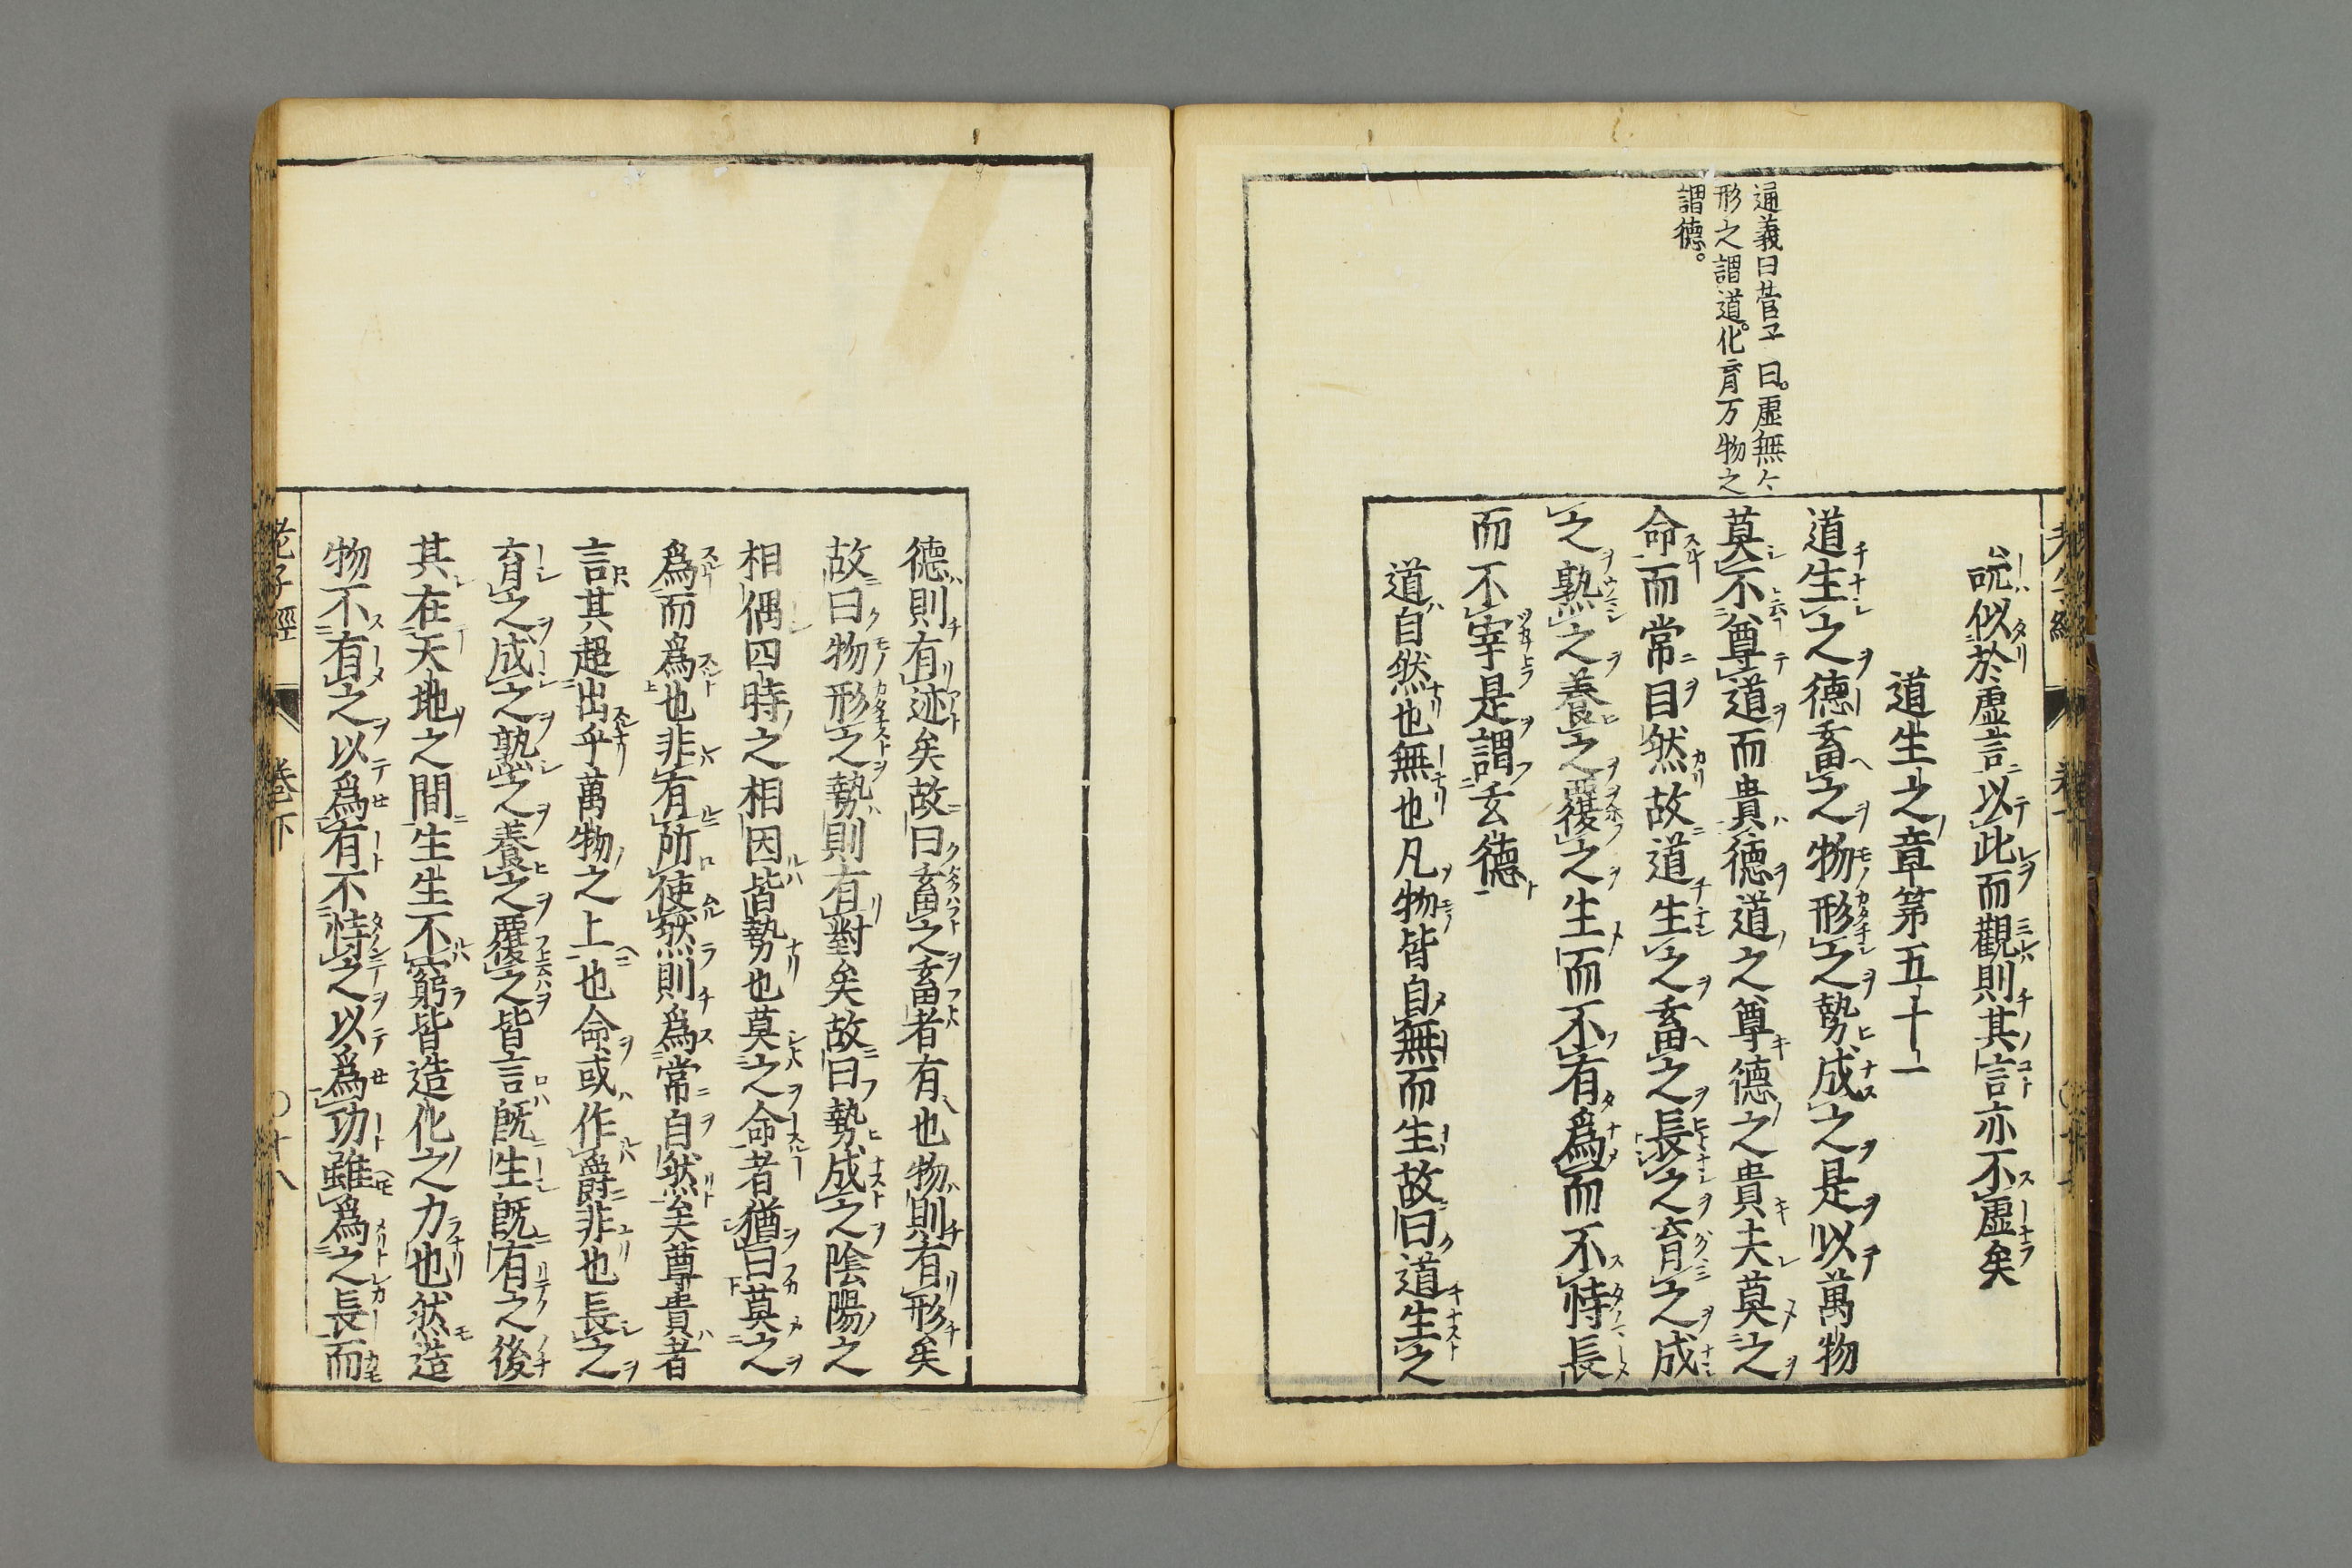 通義曰管子曰。虛無々
形之謂道。化育万物之
謂德。
說似於虛言以此而觀則其言亦不虛矣
道生之章第五十一
道生之德畜之物形之勢成之是以萬物
莫不尊道而貴德道之尊德之貴夫莫之
命而常自然故道生之畜之長之育之成
之熟之養之覆之生而不有爲而不恃長
而不宰是謂玄德
道自然也無也凡物皆自無而生故曰道生之
德則有迹矣故曰畜之畜者有也物則有形矣
故曰物形之勢則有對矣故曰勢成之陰陽之
相偶四時之相因皆勢也莫之命者猶曰莫之
爲而爲也非有所使然則爲常自然矣尊貴者
言其超出乎萬物之上也命或作爵非也長之
育之成之熟之養之覆之皆言既生既有之後
其在天地之間生生不窮皆造化之力也然造
物不有之以爲有不恃之以爲功雖爲之長而
老子經 卷下 〇十八